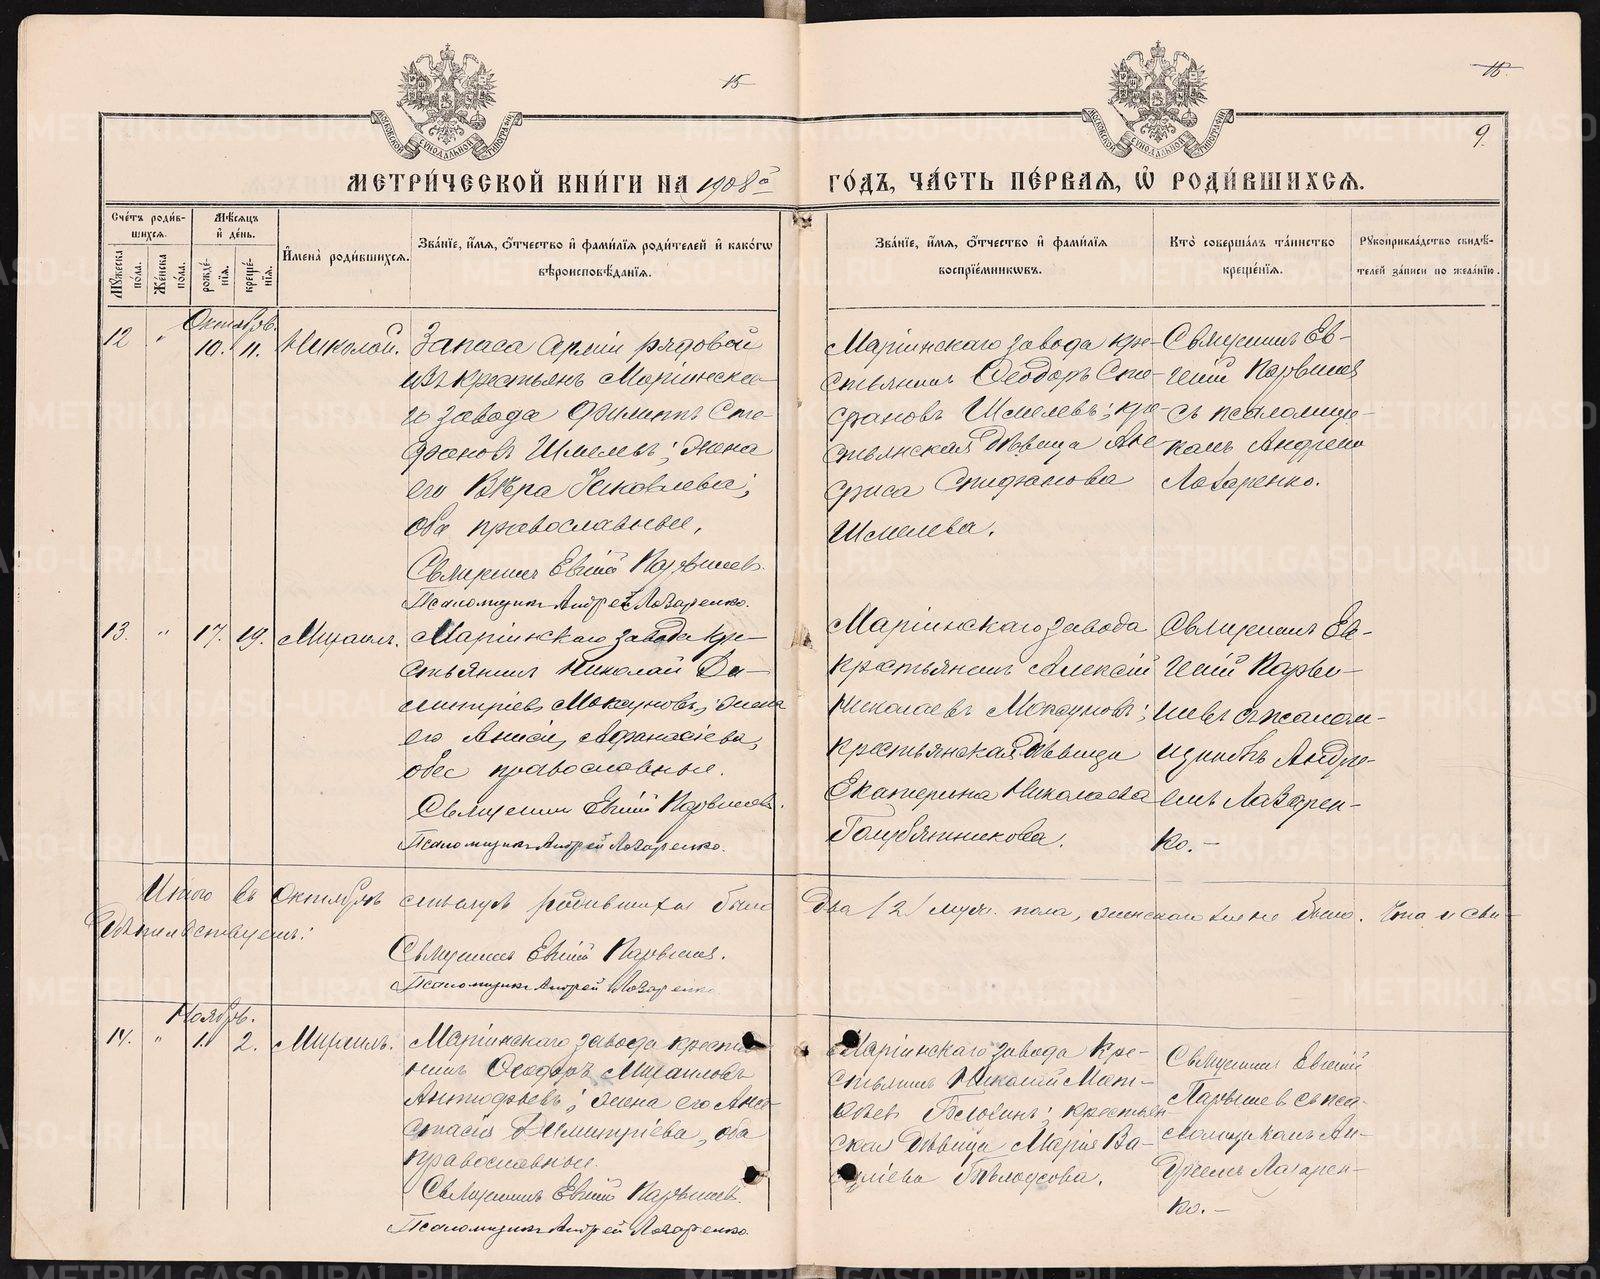 15
15
9.
МОСКОВСКОЙ СѴНОДАЛЬНОЙ ТИПОГРАФІИ
МОСКОВСКОЙ СѴНОДАЛЬНОЙ ТИПОГРАФІИ
МЕТРИ́ЧЕСКОЙ КНИ́ГИ НА 1908й ГО́ДЪ, ЧА́СТЬ ПЕ́РВАѦ, Ѡ҆ РОДИ́ВШИХСѦ.
Сче́тъ роди́в-
шихсѧ.
Мѣ́сѧцъ
и҆ де́нь.
Мꙋ́жеска
по́ла.
Же́нска
по́ла.
рожде́-
нїѧ.
креще́-
нїѧ.
И҆мена̀ роди́вшихсѧ.
Зва́нїе, и҆́мѧ, ѻ҆́тчество и҆ фами́лїѧ роди́телей и҆ како́гѡ
вѣроисповѣ́данїѧ.
Зва́нїе, и҆́мѧ, ѻ҆́тчество и҆ фами́лїѧ
воспрїе́мникѡвъ.
Кто̀ соверша́лъ та́инство
креще́нїѧ.
Рꙋкоприкла́дство свидѣ́-
телей за́писи по жела́нїю.
Октябрь.
12 " 10. 11. Николай.
Запаса Арміи рядовой
изъ крестьянъ Маріинска-
го завода Филиппъ Сте-
фановъ Шмелевъ; жена
его Вѣра Яковлева;
оба православные.
Священникъ Евгеній
Псаломщикъ Андрей Лазаренко.
Маріинскаго завода кре-
стьянинъ Ѳеодоръ Сте-
фановъ Шмелевъ; кре-
стьянская дѣвица Ан-
фиса Стефанова
Шмелева.
Священникъ Ев-
геній
съ псаломщи-
комъ Андреемъ
Лазаренко.
13. " 17. 19. Михаилъ.
Маріинскаго завода кре-
стьянинъ Николай Ди-
митріевъ Мокауновъ; жена
его Анисія Афанасіева,
оба православные.
Священникъ Евгеній
Псаломщикъ Андрей Лазаренко.
Маріинскаго завода
крестьянинъ Алексій
Николаевъ Мокауновъ;
крестьянская дѣвица
Екатерина Николаева
Голубятникова.
Священникъ Ев-
геній
съ псалом-
щикомъ Андре-
емъ Лазарен-
ко.–
Итого въ Октябрѣ мѣсяцѣ родившихся было два /2/ муж. пола, женскаго же не было. Что и сви-
дѣтельствуемъ:
Священникъ Евгеній
Псаломщикъ Андрей Лазаренко.
Ноябрь.
14. " 1. 2. Михаилъ.
Маріинскаго завода крестья-
нинъ Ѳеодоръ Михаиловъ
Антофьевъ; жена его Ана-
стасія Димитріева, оба
православные.
Священникъ Евгеній
Псаломщикъ Андрей Лазаренко.
Маріинскаго завода кре-
стьянинъ Николай Мат-
ѳеевъ крестьян-
ская дѣвица Марія Ва-
силіева Бѣлоусова.
Священникъ Евгеній
съ пса-
ломщикомъ Ан-
дреемъ Лазарен-
ко.–
METRIKI.GASO-URAL.RU